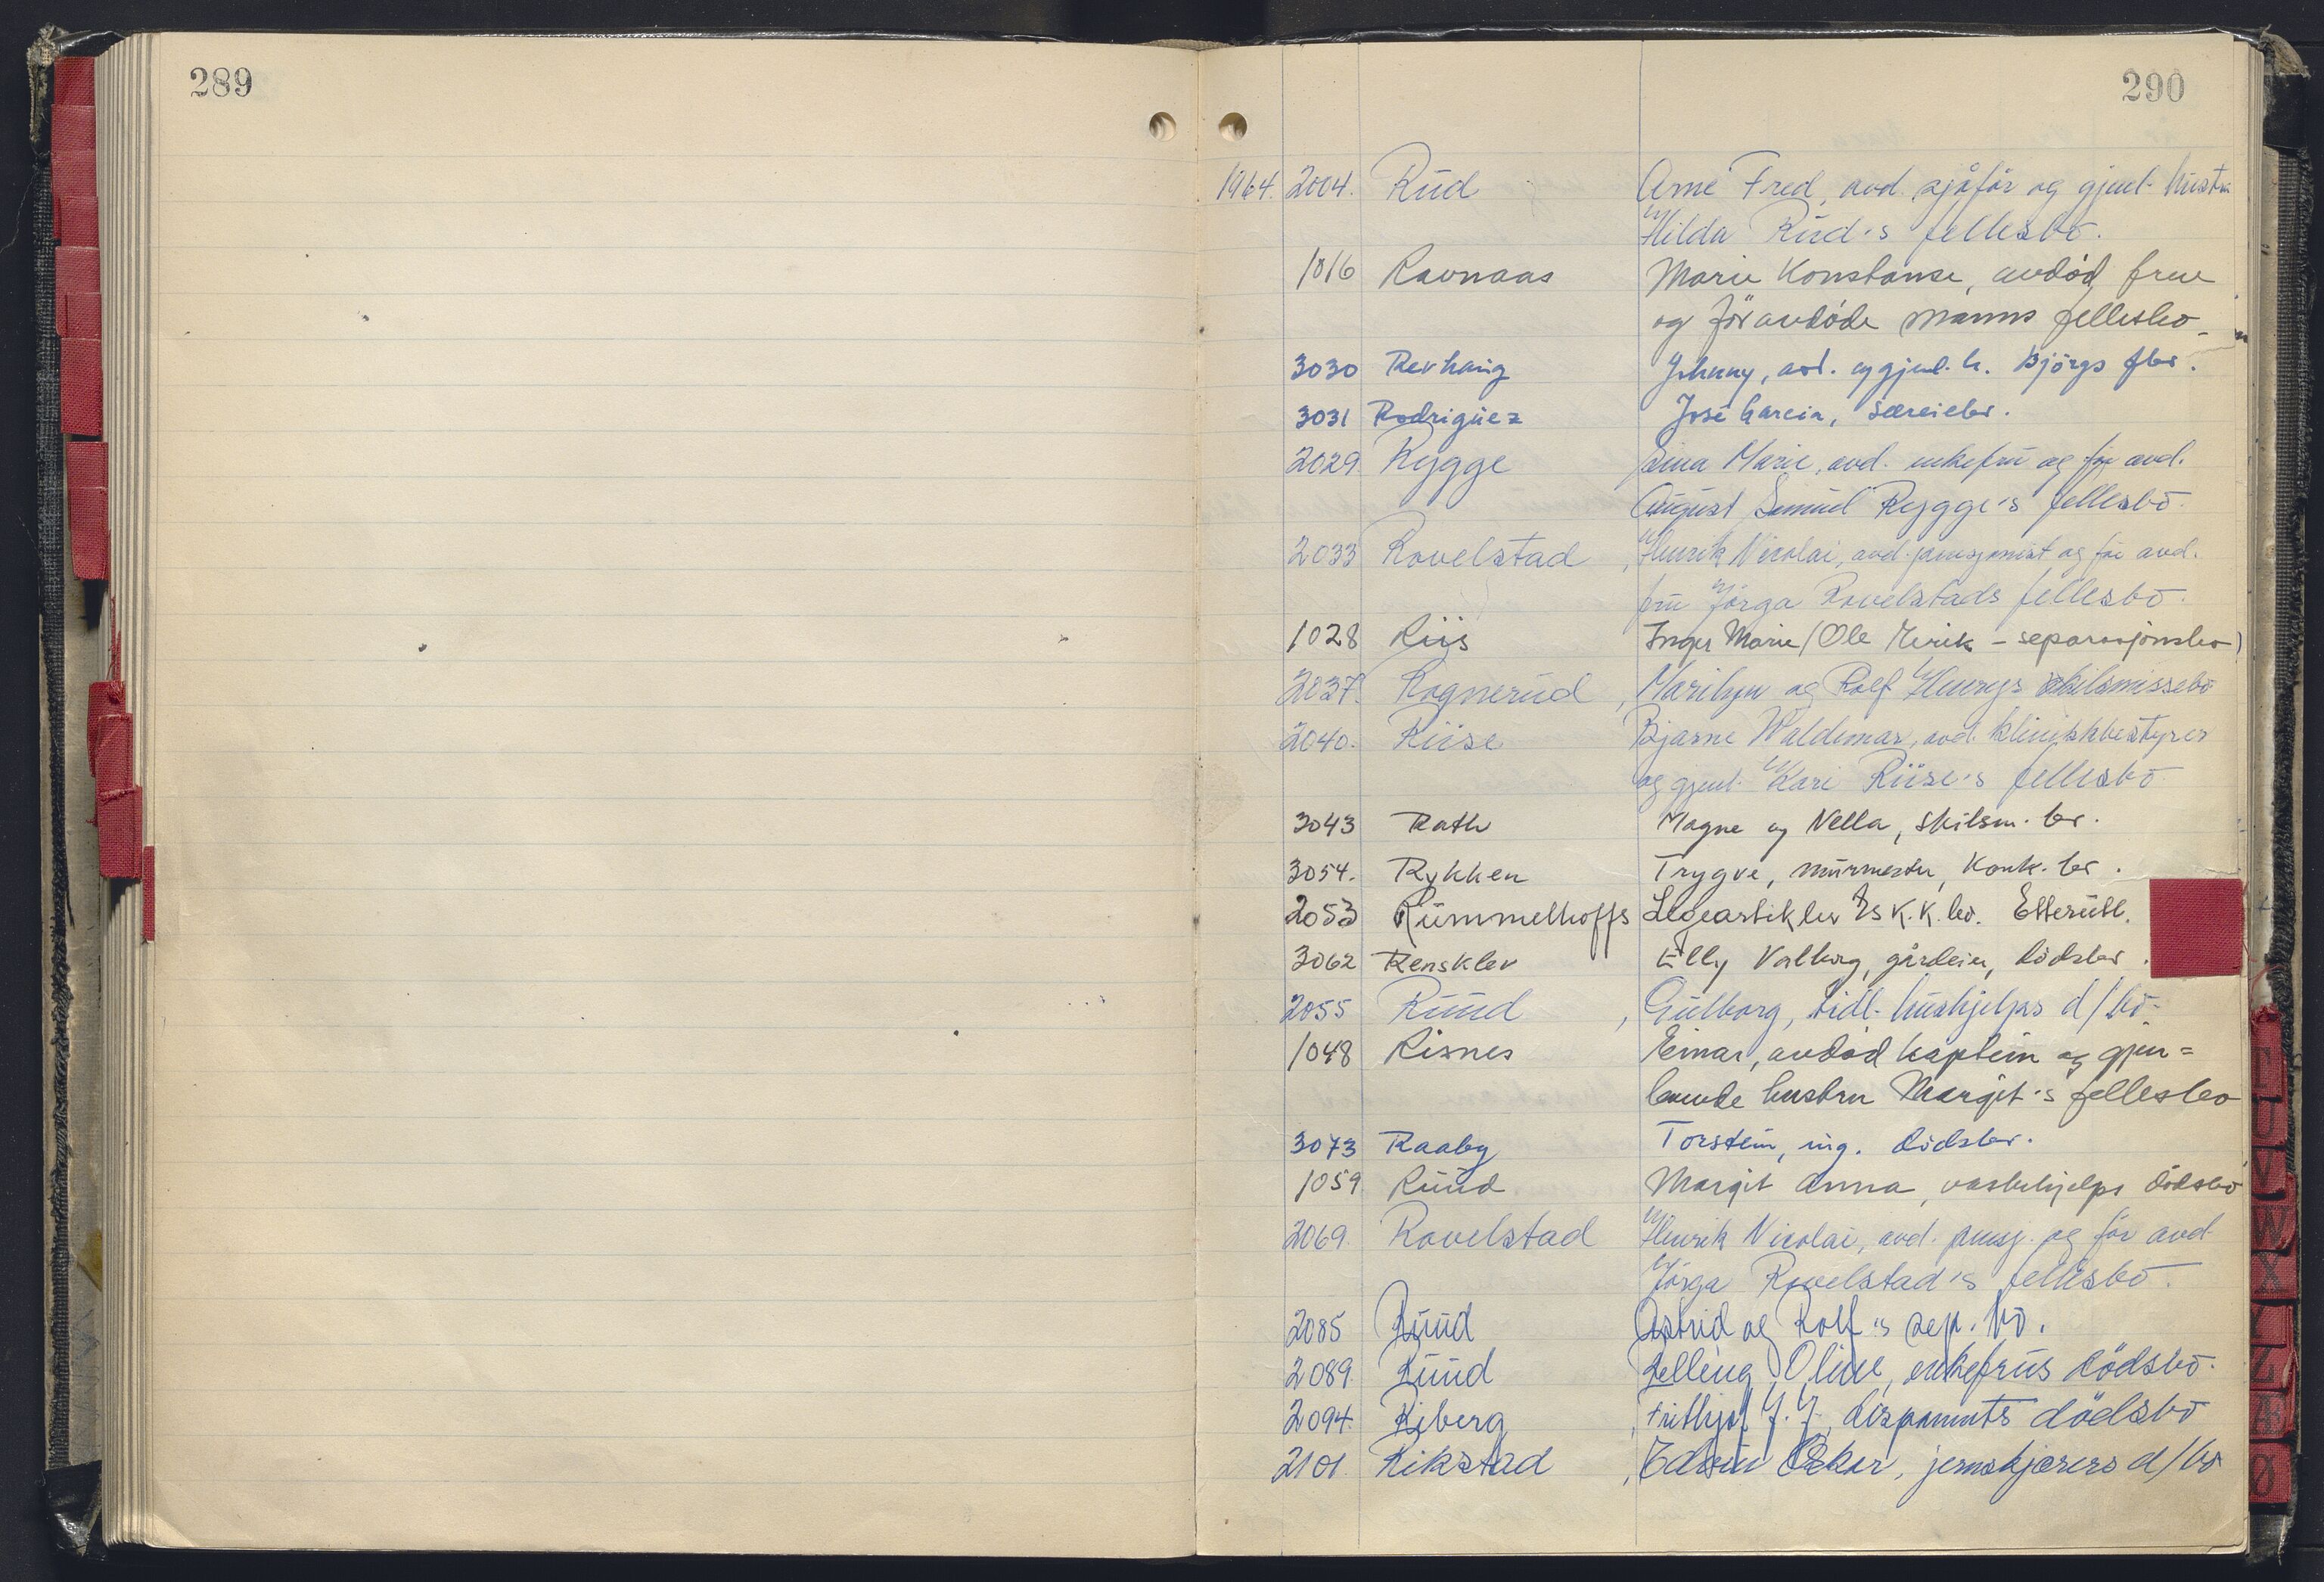 289
290
1964. 2004. Rud Arne Fred, avd. sjåfør og gjenl. hustru
Hilda Rud's fellesbo.
1016 Ravnaas Marie Konstanse, avdød frue
og før avdøde manns fellesbo
3030 Revhaug Johnny, avd. og gjenl. h. Bjørgs fbo.
3031 Rodriguez José Garcia, særeiebo.
2029. Rygge Marie, avd. enkefru og før avd.
August Samuel Rygge's fellesbo.
2033 Rovelstad, Henrik Nicolai, avd. pensjonist og før avd.
fru Jørga Rovelstads fellesbo.
1028 Riis Inger Marie (Ole Eirik - separasjonsbo)
2037. Rognerud, Marilyn og Rolf Henrys skilsmissebo
2040. Riise Bjarne Waldemar, avd. klinikkbestyrer
og gjenl. Kari Riise's fellesbo
3043 Rath Magne og Nella, skilsm. bo.
3054. Rykken Trygve, murmester, konk. bo.
2053 Rummelhoffs Legeartikler A/S K.K. bo. Etterutl.
3062 Rensklev Elly Valborg, gårdeier, dødsbo.
2055 Ruud, Gulborg, tidl. hushjelps d/bo.
1048 Risnes Einar, avdød kaptein og gjen=
levende hustru Margit's fellesbo
3073 Raaby Torstein, ing. dødsbo.
1059. Ruud Margit Anna, vaskehjelps dødsbo
2069. Rovelstad Henrik Nicolai, avd. pensj. og før avd.
Jørga Rovelstad's fellesbo.
2085 Ruud Astrid og Rolf's sep. bo.
2089. Ruud Oline, enkefrus dødsbo.
2094. Riberg, Frithjof J. J. disponents dødsbo
2101. Rikstad, Edwin Oskar, jernskjærers d/bo
T
U
V
W
X
Y
Z
Æ
Ø